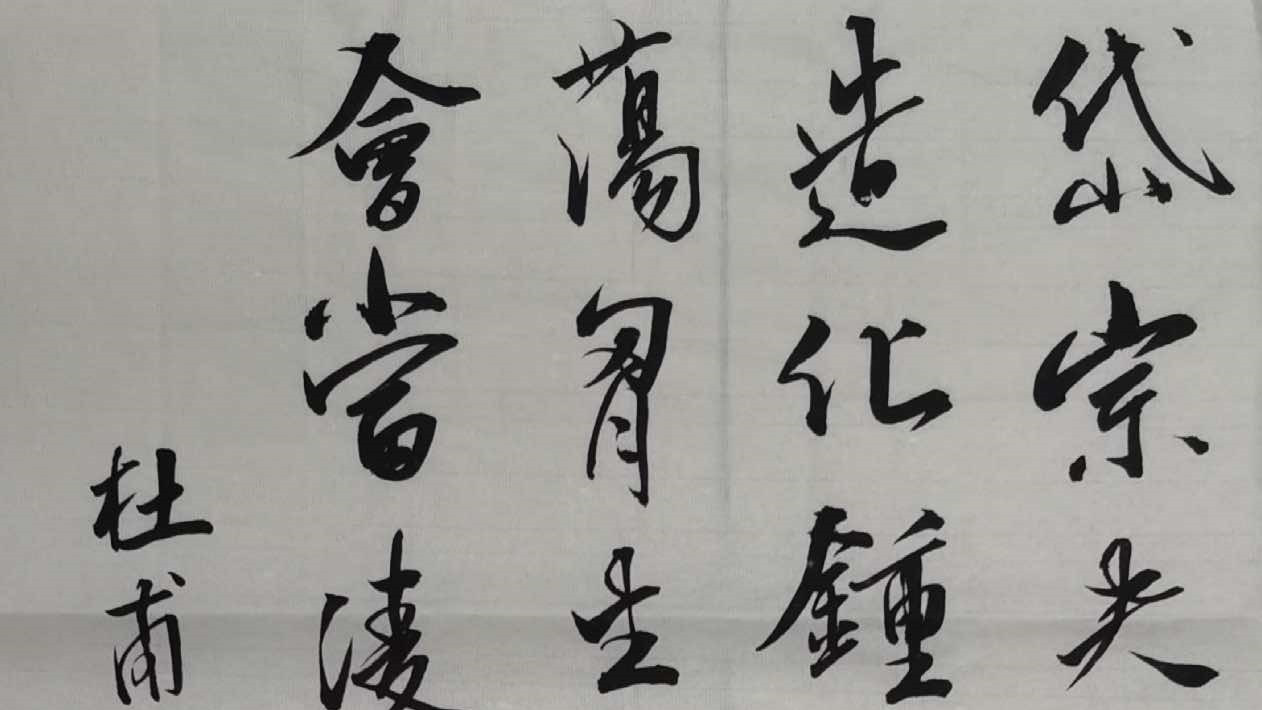 岱宗夫
造化鍾
蕩胷生
會當凌
杜甫